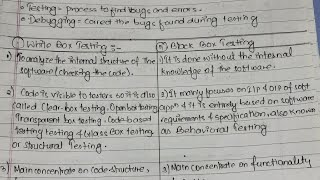 Testing - process to find bugs and errors.
Debugging - Correct the bugs found during testing
① White Box Testing :-
② Black Box Testing
1) To analyze the internal structure of the software (checking the code).
1) It is done without the internal knowledge of the software.
2) Code is visible to testers so it is also called Clear-box testing, Open box testing, Transparent box testing, Code-based testing & Glass Box testing or Structural testing.
2) It mainly focuses on I/P & O/P of soft & it is entirely based on software requirements & specification, also known as Behavioral Testing
3) Main concentrate on code structure,
3) Main concentrate on functionality